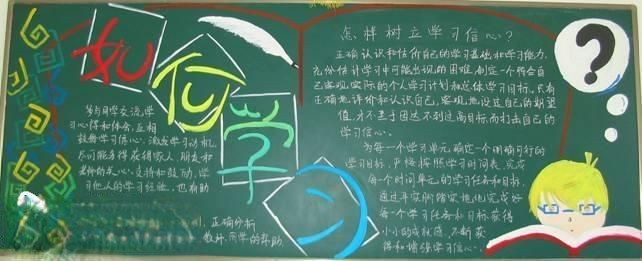 如何学习
多与同学交流学
习心得和体会,互相
鼓励学习信心,激发学习动机,
尽可能多得获得家人、朋友和
老师的关心、支持和鼓励,学
习他人的学习经验,也有助
1.正确分析
教师、同学的帮助.
怎样树立学习信心?
正确认识和估价自己的学习基础和学习能力,
充份估计学习中可能出现的困难,制定一个符合自
己客观实际的个人学习计划和总体学习目标.只有
正确地评价和认识自己,客观地设定自己的期望
值,才不至于因达不到过高目标而打击自己的
学习信心.
为每一个学习单元确定一个明确可行的
学习目标,严格按照学习时间表,完成
每一个时间单元的学习任务和目标,
通过平实脚踏实地地完成好
每一个学习任务和目标,获得
小小的成就感,不断获
得和增强学习信心.
?